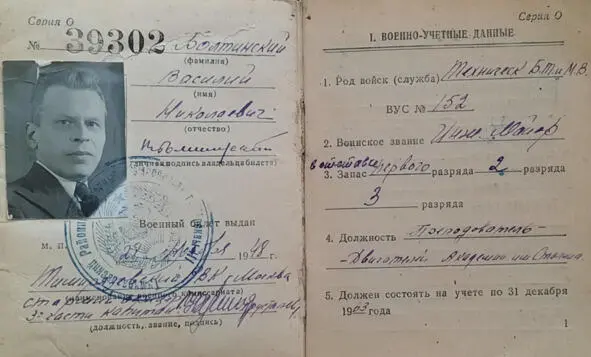 Серия О
№ 39302 Болтинский
(фамилия)
Василий
(имя)
Николаевич
(отчество)
(личная подпись владельца билета)
Военный билет выдан
М. П. 1948 г.
РВК г. Москва
(наименование военного комиссариата)
3 части капитан
(должность, звание, подпись)
Серия О
I. ВОЕННО-УЧЕТНЫЕ ДАННЫЕ
1. Род войск (служба) Техническ Б.Т. и М.В.
ВУС № 152
2. Воинское звание Инж. Майор
в отставке
3. Запас первого разряда 2 разряда
3 разряда
4. Должность Преподователь-
Двигателей Академии им. Сталина
5. Должен состоять на учете по 31 декабря
1903 года
1